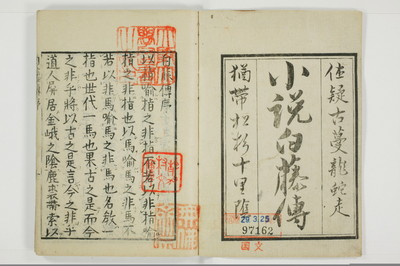 佐疑古蔓龍蛇走
小説白藤傳
猶帶松杉十里陰
29.3.25
97162
国文
白藤傳序
以指喻指之非指不若以非指喻
指之非指也以馬喻馬之非馬不
若以非馬喻馬之非馬也名啟一
指也世代一馬也果古之是而今
之非乎將以古之是言今之非乎
道人屏居金峨之陰鹿裘帶索以